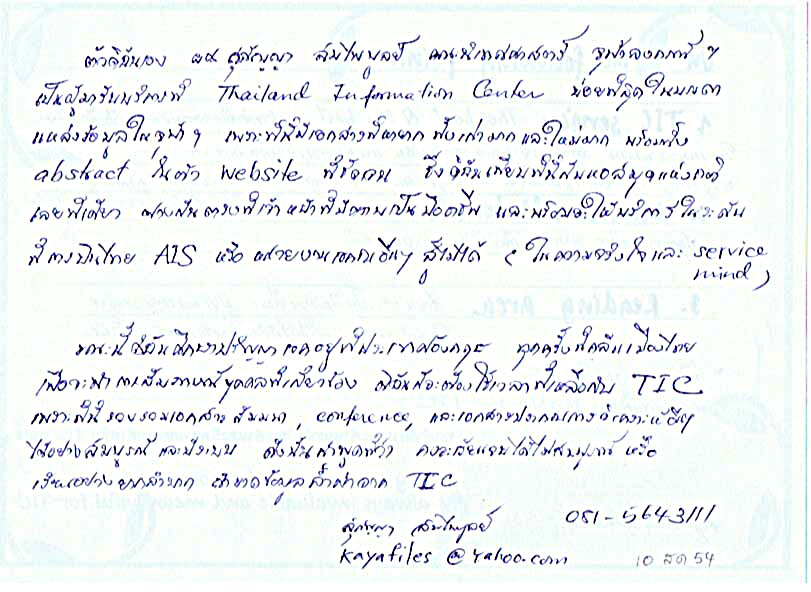 ตัวดิฉันเอง ผศ สุกัญญา สมไพบูลย์ คณะนิเทศศาสตร์ จุฬาลงกรณ์ ฯ
เป็นผู้มารับบริการที่ Thailand Information Center บ่อยที่สุดในบรรดา
แหล่งข้อมูลในจุฬา ฯ เพราะที่นี่มีเอกสารที่หายาก ทั้งเก่ามาก และใหม่มาก พร้อมทั้ง
abstract ในตัว website ที่ชัดเจน ซึ่งดิฉันเทียบที่นี่กับหอสมุดแห่งชาติ
เลยทีเดียว ต่างกันตรงที่เจ้าหน้าที่มีความเป็นมืออาชีพ และพร้อมจะให้บริการในระดับ
ที่การบินไทย AIS หรือ หน่วยงานเอกชนอื่นๆ สู้ไม่ได้ ( ในความจริงใจและ service
mind )
ขณะนี้ดิฉันศึกษาปริญญาเอกอยู่ที่ประเทศอังกฤษ ทุกครั้งที่กลับเมืองไทย
เพื่อจะทำการสัมภาษณ์บุคคลที่เกี่ยวข้อง ดิฉันก็จะต้องใช้เวลาที่เหลือกับ TIC
เพราะที่นี่รวบรวมเอกสาร สัมมนา, conference, และเอกสารประกอบการวิเคราะห์อื่นๆ
ได้อย่างสมบูรณ์ และเป็นระบบ ดังนั้นคำพูดที่ว่า คงจะเรียนจบได้ไม่สมบูรณ์ หรือ
เรียนอย่างยากลำบาก ถ้าขาดข้อมูลล้ำค่าจาก TIC
สุกัญญา สมไพบูลย์ 081-5643111
kayafiles @ yahoo.com 10 สค 54